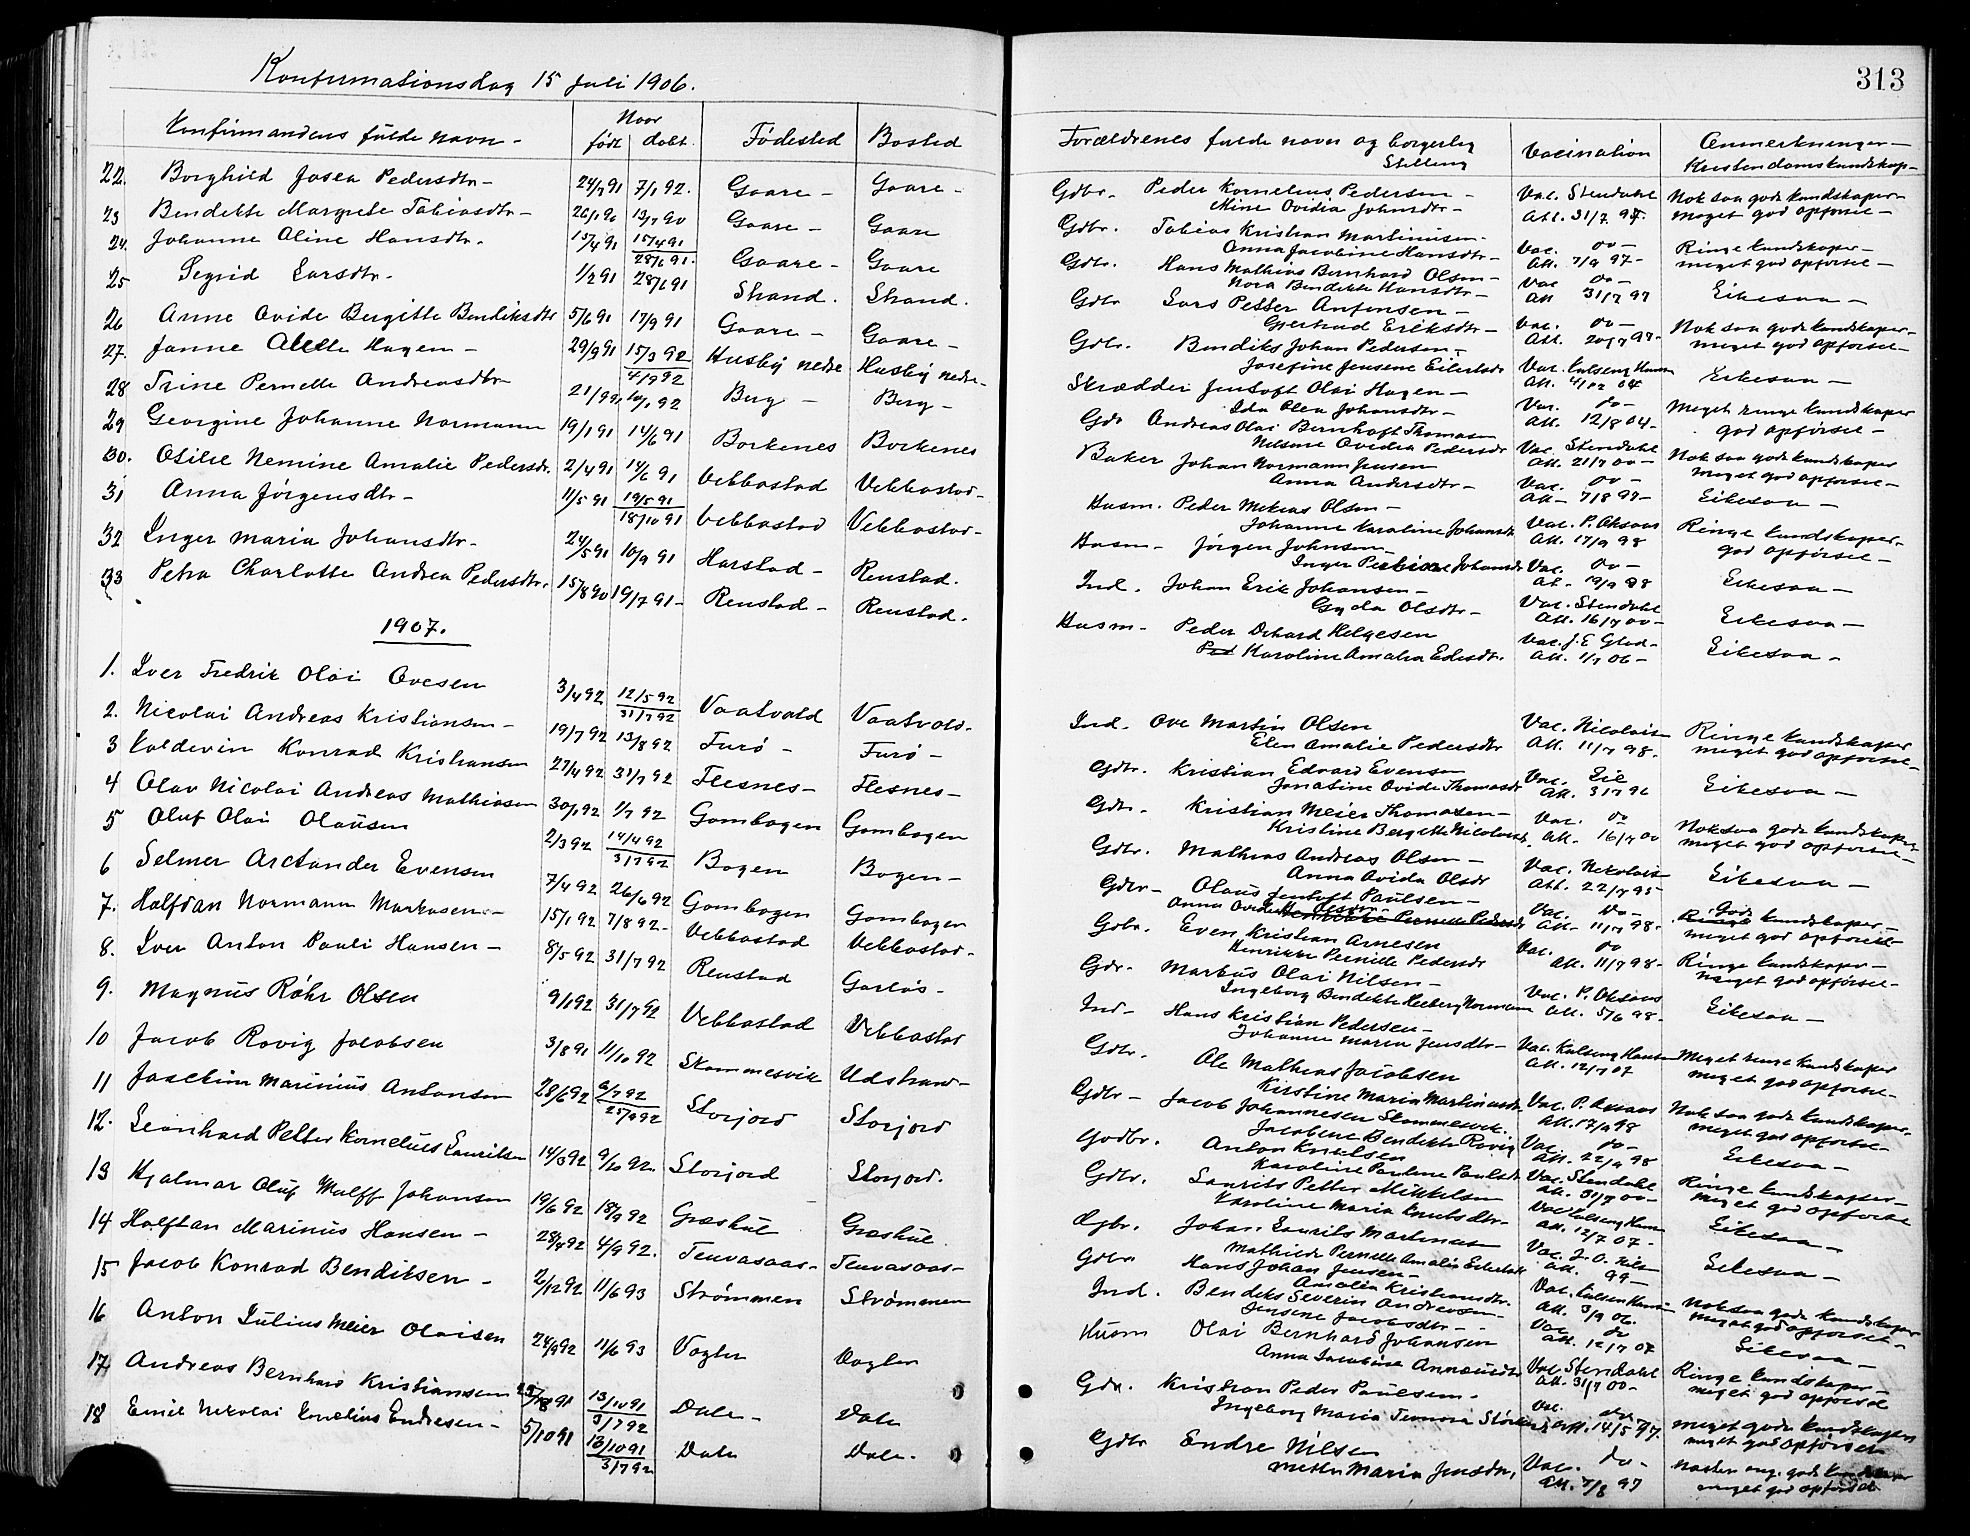 Konfirmationsdag 15 Juli 1906.
Konfirmandens fulde navn - Naar født døbt Fødested Bosted
22. Borghild Josea Pedersdtr - 24/7 91 7/1 92. Gaare - Gaare -
23 Bendikte Margrete Tobiasdtr - 13/7 90 Gaare - Gaare
24. Johanne Aline Hansdtr. 15/4 91 15/4 91 28/6 91. Gaare - Gaare
25 Sigrid Larsdtr. 1/2 91 28/6 91 Strand. Strand.
26 Anne Ovide Bergitte Bendiksdtr 5/6 91 17/9 91 Gaare - Gaare -
27. Janne Hagen - 29/9 91 15/3 92 4/9 92 Husby nedre Husby nedre -
28 Trine Pernelle Andreasdtr 92 Berg - Berg -
29 Georgine Johanne Normann 19/1 91 14/6 91 Borkenes Borkenes
30. Otilie Nemine Amalie Pedersdtr. 2/4 91 14/6 91 Vebbostad Vebbostad -
31 Anna Jørgensdtr - 11/5 91 19/5 91 18/10 91 Vebbostad Vebbostad -
32 Inger Maria Johansdtr - 24/5 91 10/9 91 Harstad - Renstad.
33 Petra Charlotte Andrea Pedersdtr. 15/8 90 19/7 91 - Renstad - Renstad.
1907.
1. Iver Fredrik Olai Ovesen 3/4 92 12/5 92 31/7 92 Vaatvold Vaatvold.
2. Nicolai Andreas Kristiansen - 19/7 92 13/8 92 Furø - Furø -
3 Valdevin Konrad Kristiansen 27/4 92 31/7 92 Flesnes - Flesnes -
4 Olav Nicolai Andreas Mathiasen 30/1 92 1/7 92 Gombogen Gombogen
5 Oluf Olai Olausen 2/3 92 14/4 92 3/7 92 Bogen Bogen -
6 Selmer Arctander Evensen 7/4 92 26/6 92 Gombogen Gombogen
7. Halfdan Normann Markusen - 15/1 92 7/8 92 - Vebbostad Vebbostad -
8. Iver Anton Pauli Hansen - 8/5 92 31/7 92 Renstad
9. Magnus Røhr Olsen 9/1 92 31/7 92 Vebbostad Vebbostad
10 Jacob Rovig Jacobsen 3/8 91 11/10 92 Skommesvik Udstrand -
11 Joachim Marinius Antonsen 28/6 92 Storjord Storjord
12. Leonhard Petter Kornelius Lauritsen 14/3 92 9/10 92. Storjord Storjord.
13 Hjalmar Oluf Wulff Johansen 19/6 92 18/9 92 Græshul Græshul
14 Halftan Marinus Hansen - 28/4 92 4/9 92. Tenvasaas - Tenvasaas -
15 Jacob Konrad Bendiksen - 2/12 92 11/6 93 Strømmen Strømmen
16 Anton Julius Meier Olaisen 24/9 92 11/6 93 Vogter Vogter
17 Andreas Bernhard Kristiansen 91 13/10 91 3/7 92 Dale - Dale
18 Emil Nikolai Kornelius Endresen - 5/10 91 13/10 91 3/7 92 Dale Dale.
313
Forældrenes fulde navn og borgerlig Stilling Vaccination Anmerkninger - Kristendomskundskap -
Gdbr. Peder Kornelius Pedersen - Vac. Stendahl Nok saa gode kundskaper
Mine Ovidia Johnsdtr - Att. 31/7 97. meget god opførsel -
Gdbr. Tobias Kristian Martinusen - Vac. do - Ringe kundskaper -
Anna Jacobine Hansdtr - Att. 7/9 97 - meget god opførsel -
Gdbr. Hans Mathias Bernhard Olsen - Vac do -
Nora Bendikte Hansdtr - Att 31/7 97 Eikesaa -
Gdbr Lars Petter Anfinsen - Vac. do - Nok saa gode kundskaper -
Gjertrud Eriksdtr - Att. meget god opførsel -
Gdbr. Bendiks Johan Pedersen -
Josefine Jensine Eilertsdtr Att. Eikesaa -
Skrædder Jentoft Olai Hagen - Vac. do - Meget ringe kundskaper
Ida Olea Johansdtr - Att. 12/8 04 - god opførsel -
Gdr Andreas Olai Bernhoft Thomassen Vac. Stendahl Nok saa gode kundskaper
Ovidia Pedersdtr Att. 21/7 00 - meget god opførsel -
Baker Johan Normann Jensen Vac. do -
Anna Andersdtr - Att - 7/8 97 - Eikesaa -
Husm. Peder Mekias Olsen - Vac. P. Aksaas Ringe kundskaper -
Johanne Karoline Johansdtr Att. 17/9 98 god opførsel -
Husm - Jørgen Johnsen - Vac. do -
Inger Johansdtr Att - 19/9 98 Eikesaa -
Ind. Johan Erik Johansen - Vac. Stendahl
Gyda Olsdtr - Att. 16/7 00 - Eikesaa -
Husm - Peder Helgesen Vac. J. E.
Karoline Amalia Att. 1/7 06 - Eikesaa -
Ind. Ove Martin Olsen Vac. Nicolaisen Ringe kundskaper
Elen Amalie Pedersdtr Att. 11/7 98. meget god opførsel -
Gdbr. Kristian Edvard Evensen Vac.
Jonatine Ovide Thomasdtr Att. Eikesaa -
Gdbr. Kristian Meier Thomassen - Vac. do Nok saa gode kundskaper
Kristine Bergitte Nicolaisdtr. Att. 16/7 00 meget god opførsel -
Gdbr. Mathias Andreas Olsen - Vac. Nikolaisen
Anna Ovida Olsdr Att. 22/7 95 Eikesaa -
Gdbr - Olaus Jentoft Paulsen - Vac. do - Gode kundskaper -
Anna Ovidia Att. 11/7 98 - meget god opførsel -
Gdbr. Even Kristian Arnesen Vac. do Ringe kundskaper -
Henrikke Pernille Pedersdr Att. 11/7 98 - meget god opførsel -
Gdr. Markus Olai Nilsen - Vac. P. Aksaas
Ingeborg Bendikte Heeberg Normann Att. 5/6 98 - Eikesaa -
Ind - Hans Kristian Pedersen - Meget ringe kundskaper
Johanne Maria Jensdtr - Att. 12/7 07 meget god opførsel -
Gdbr. Ole Mathias Jacobsen Vac. P. Aksaas Nok saa gode kundskaper
Kirstine Maria Martinusdtr Att. 17/9 98 meget god opførsel -
Gdbr - Jacob Johannesen Skommesvik. Vac. do -
Jacobine Bendikte Rovig Att. 22/9 98 Eikesaa -
Gadbr. Anton Knutsen Vac. Stendahl Ringe kundskaper -
Karoline Pauline Paulsdtr Att. 31/7 00 - meget god opførsel
Gdbr. Laurits Petter Mikkelsen
Karoline Maria Knutsdtr - Att. 12/7 07 - Eikesaa -
Gbr. Johan Laurits Martinus Vac. J. O.
Mathilde Pernelle Amalie Eilertsdtr Att. 99 - Eikesaa -
Gdbr Hans Johan Jensen - Nok saa gode kundskaper
Amalia Kristiansdtr. Att. 3/9 06. meget god opførsel -
Ind. Bendiks Severin Andreasen Vac do
Jensine Jacobsdtr - Att. 12/7 07 Eikesaa -
Husm Olai Bernhard Johansen Vac. Stendahl Ringe kundskaper -
Anna Jacobine Att. 31/7 00 - meget god opførsel
Gdr. Kristian Peder Paulsen - Vac. do meget gode kundskaper
Ingeborg Maria Att. 14/5 97. meget god opførsel
Gdbr Endre Nilsen Vac. do -
Mette Maria Jensdtr, Att. 7/8 97 meget god opførsel